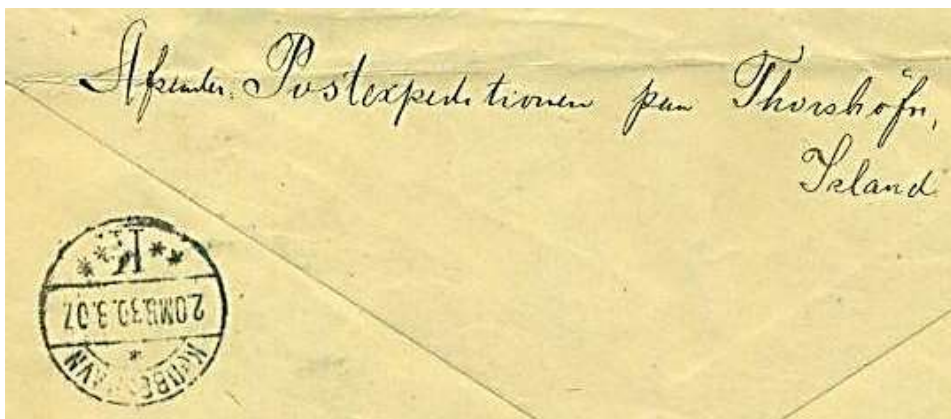 Afsender: Postexpeditionen paa Thorshöfn,
Island
K
20MB.30.3.07.
KJØBENHAVN